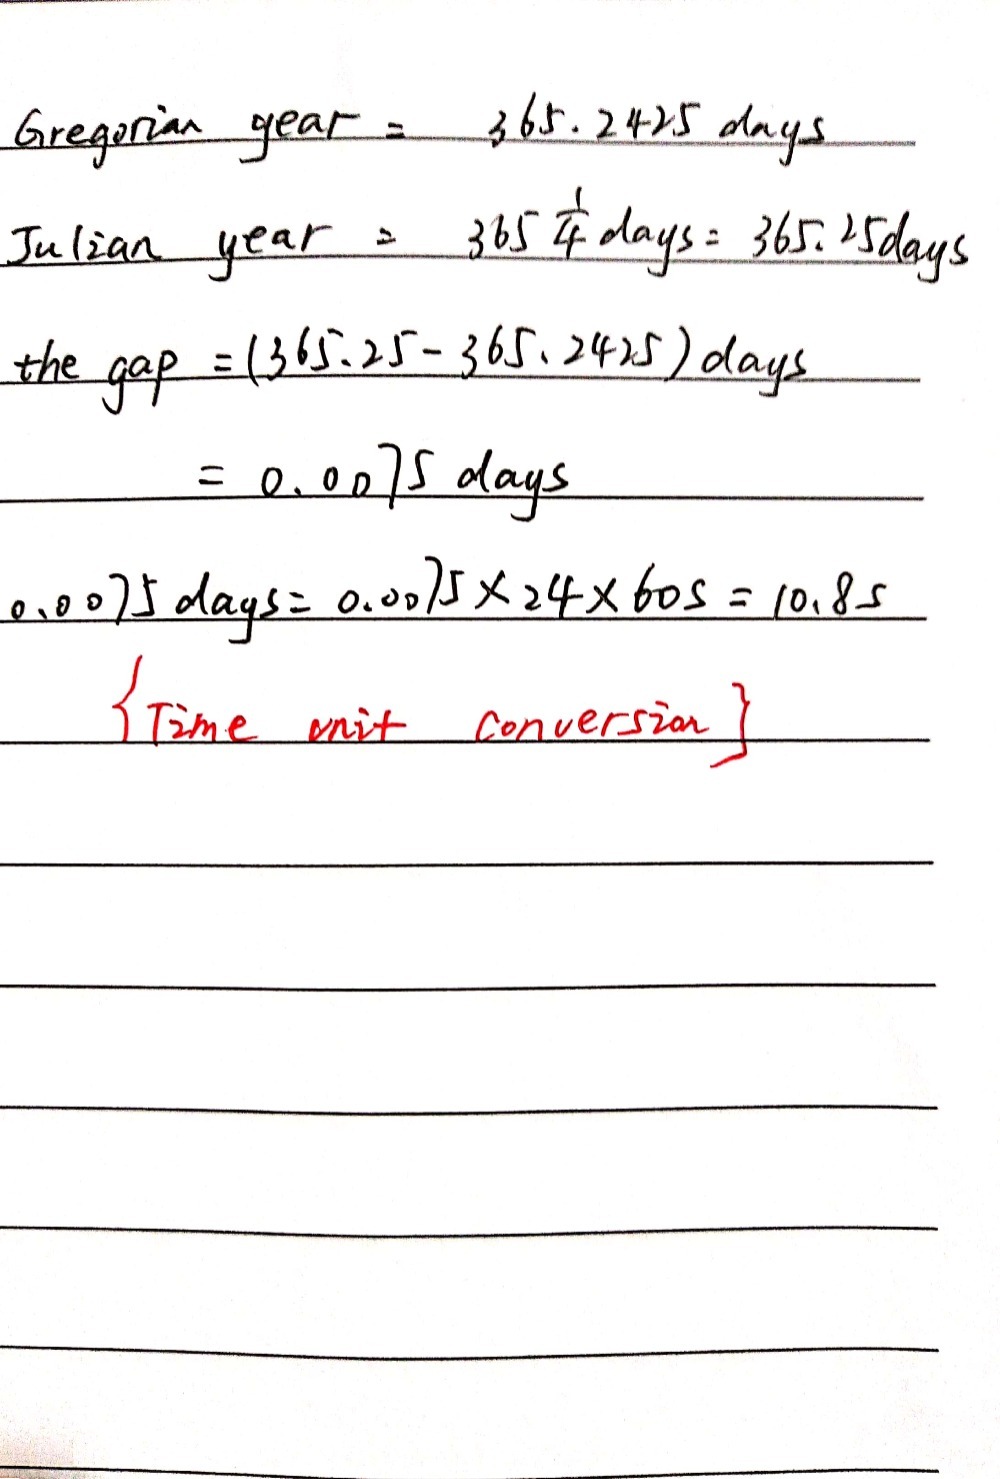 Gregorian year = 365.2425 days
Julian year = 365 1/4 days = 365.25days
the gap = (365.25-365.2425) days
= 0.0075 days
0.0075 days = 0.0075×24×60s = 10.8s
{Time unit conversion}